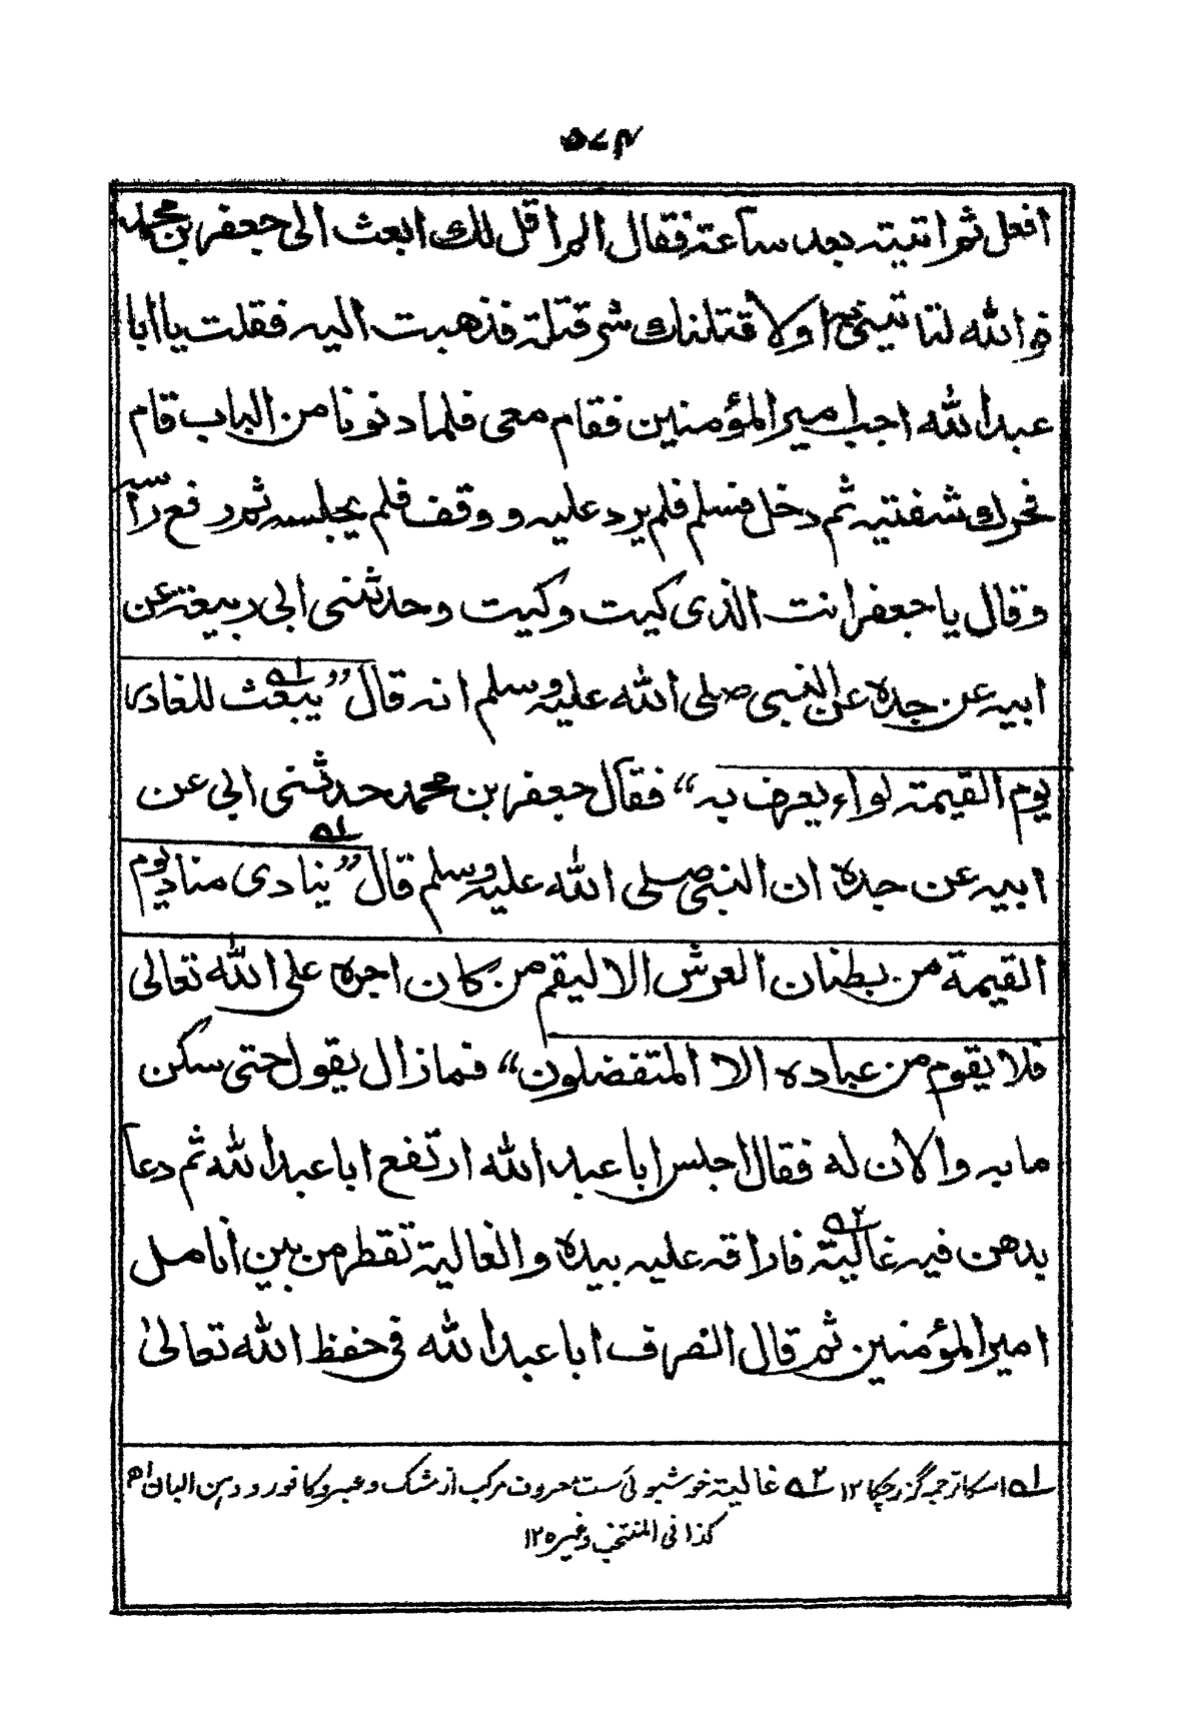 ۵۷۴
افعل ثم اتيته بعد ساعة فقال الم اقل لك ابعث الى جعفر بن محمد
فوالله لتاتينى به او لاقتلنك شر قتلة فذهبت اليه فقلت يا ابا
عبدالله اجب امير المؤمنين فقام معى فلما دنونا من الباب قام
فحرك شفتيه ثم دخل فسلم فلم يرد عليه ووقف فلم يجلسه ثم رفع راسه
وقال يا جعفر انت الذى كيت وكيت وحدثنى ابى ربيعة عن
ابيه عن جده عن النبى صلى الله عليه وسلم انه قال ”يبعث للغادر
يوم القيمة لواء يعرف به“ فقال جعفر بن محمد حدثنى ابى عن
ابيه عن جده ان النبى صلى الله عليه وسلم قال ”ينادى مناد يوم
القيمة من بطنان العرش الا ليقم من كان اجره على الله تعالى
فلا يقوم من عباده الا المتفضلون“ فما زال يقول حتى سكن
ما به ولان له فقال اجلس ابا عبدالله ارتفع ابا عبدالله ثم دعا
بدهن فيه غالية فاراقه عليه بيده والغالية تقطر من بين انامل
امير المؤمنين ثم قال انصرف ابا عبدالله فى حفظ الله تعالىٰ
۱ اسکا ترجمہ گزر چکا ۱۲ ۲ غالیۃ خوشبوئی ست معروف مرکب از مشک و عنبر و کافور و دہن البان اھ
کذا فی المنتخب وغیرہ ۱۲